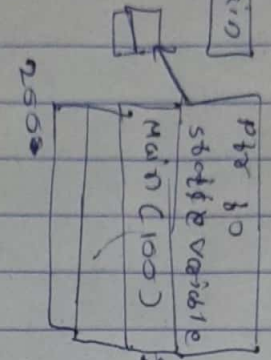 in
Ptr to
static variable
Main (100)
2000